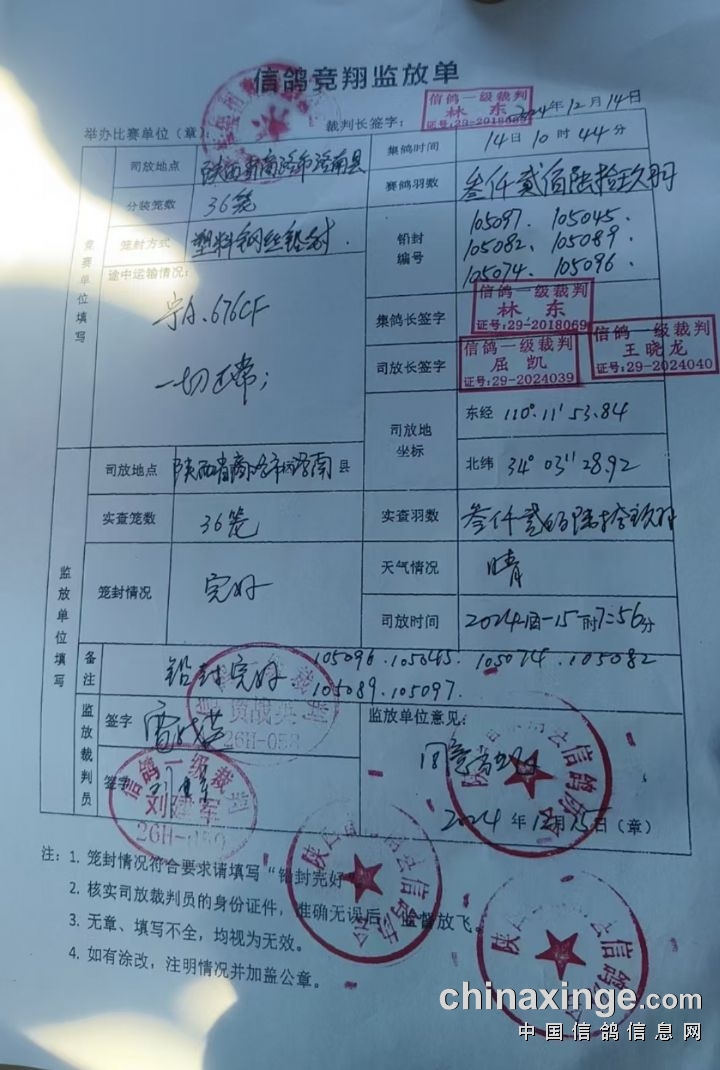 信鸽竞翔监放单
举办比赛单位（章）：
裁判长签字：
信鸽一级裁判
林 东
证号:29-2018069
2024年12月14日
司放地点
陕西省商洛市洛南县
集鸽时间
14日10时44分
分装笼数
36笼
赛鸽羽数
叁仟贰佰陆拾玖羽
竞赛单位填写
笼封方式
塑料钢丝铅封
铅封编号
105097. 105045.
105082. 105089.
105074. 105096.
途中运输情况:
宁A.676CF
一切正常;
集鸽长签字
信鸽一级裁判
林 东
证号:29-2018069
司放长签字
信鸽一级裁判
屈 凯
证号:29-2024039
信鸽一级裁判
王晓龙
证号:29-2024040
司放地坐标
东经 110°11'53.84
北纬 34°03"28.92
监放单位填写
司放地点
陕西省商洛市洛南县
实查笼数
36笼
实查羽数
叁仟贰佰陆拾玖羽
笼封情况
完好
天气情况
晴
司放时间
7:56分
备注
铅封完好 105096.105045. 105074.105082
105089.105097.
监放裁判员
签字
贾战英
26H-058
签字
信鸽一级裁判
刘建军
26H-059
监放单位意见:
2024年12月15日（章）
注：1. 笼封情况符合要求请填写“铅封完好”
2. 核实司放裁判员的身份证件，准确无误后，监督放飞。
3. 无章、填写不全，均视为无效。
4. 如有涂改，注明情况并加盖公章。
chinaxinge.com
中国信鸽信息网